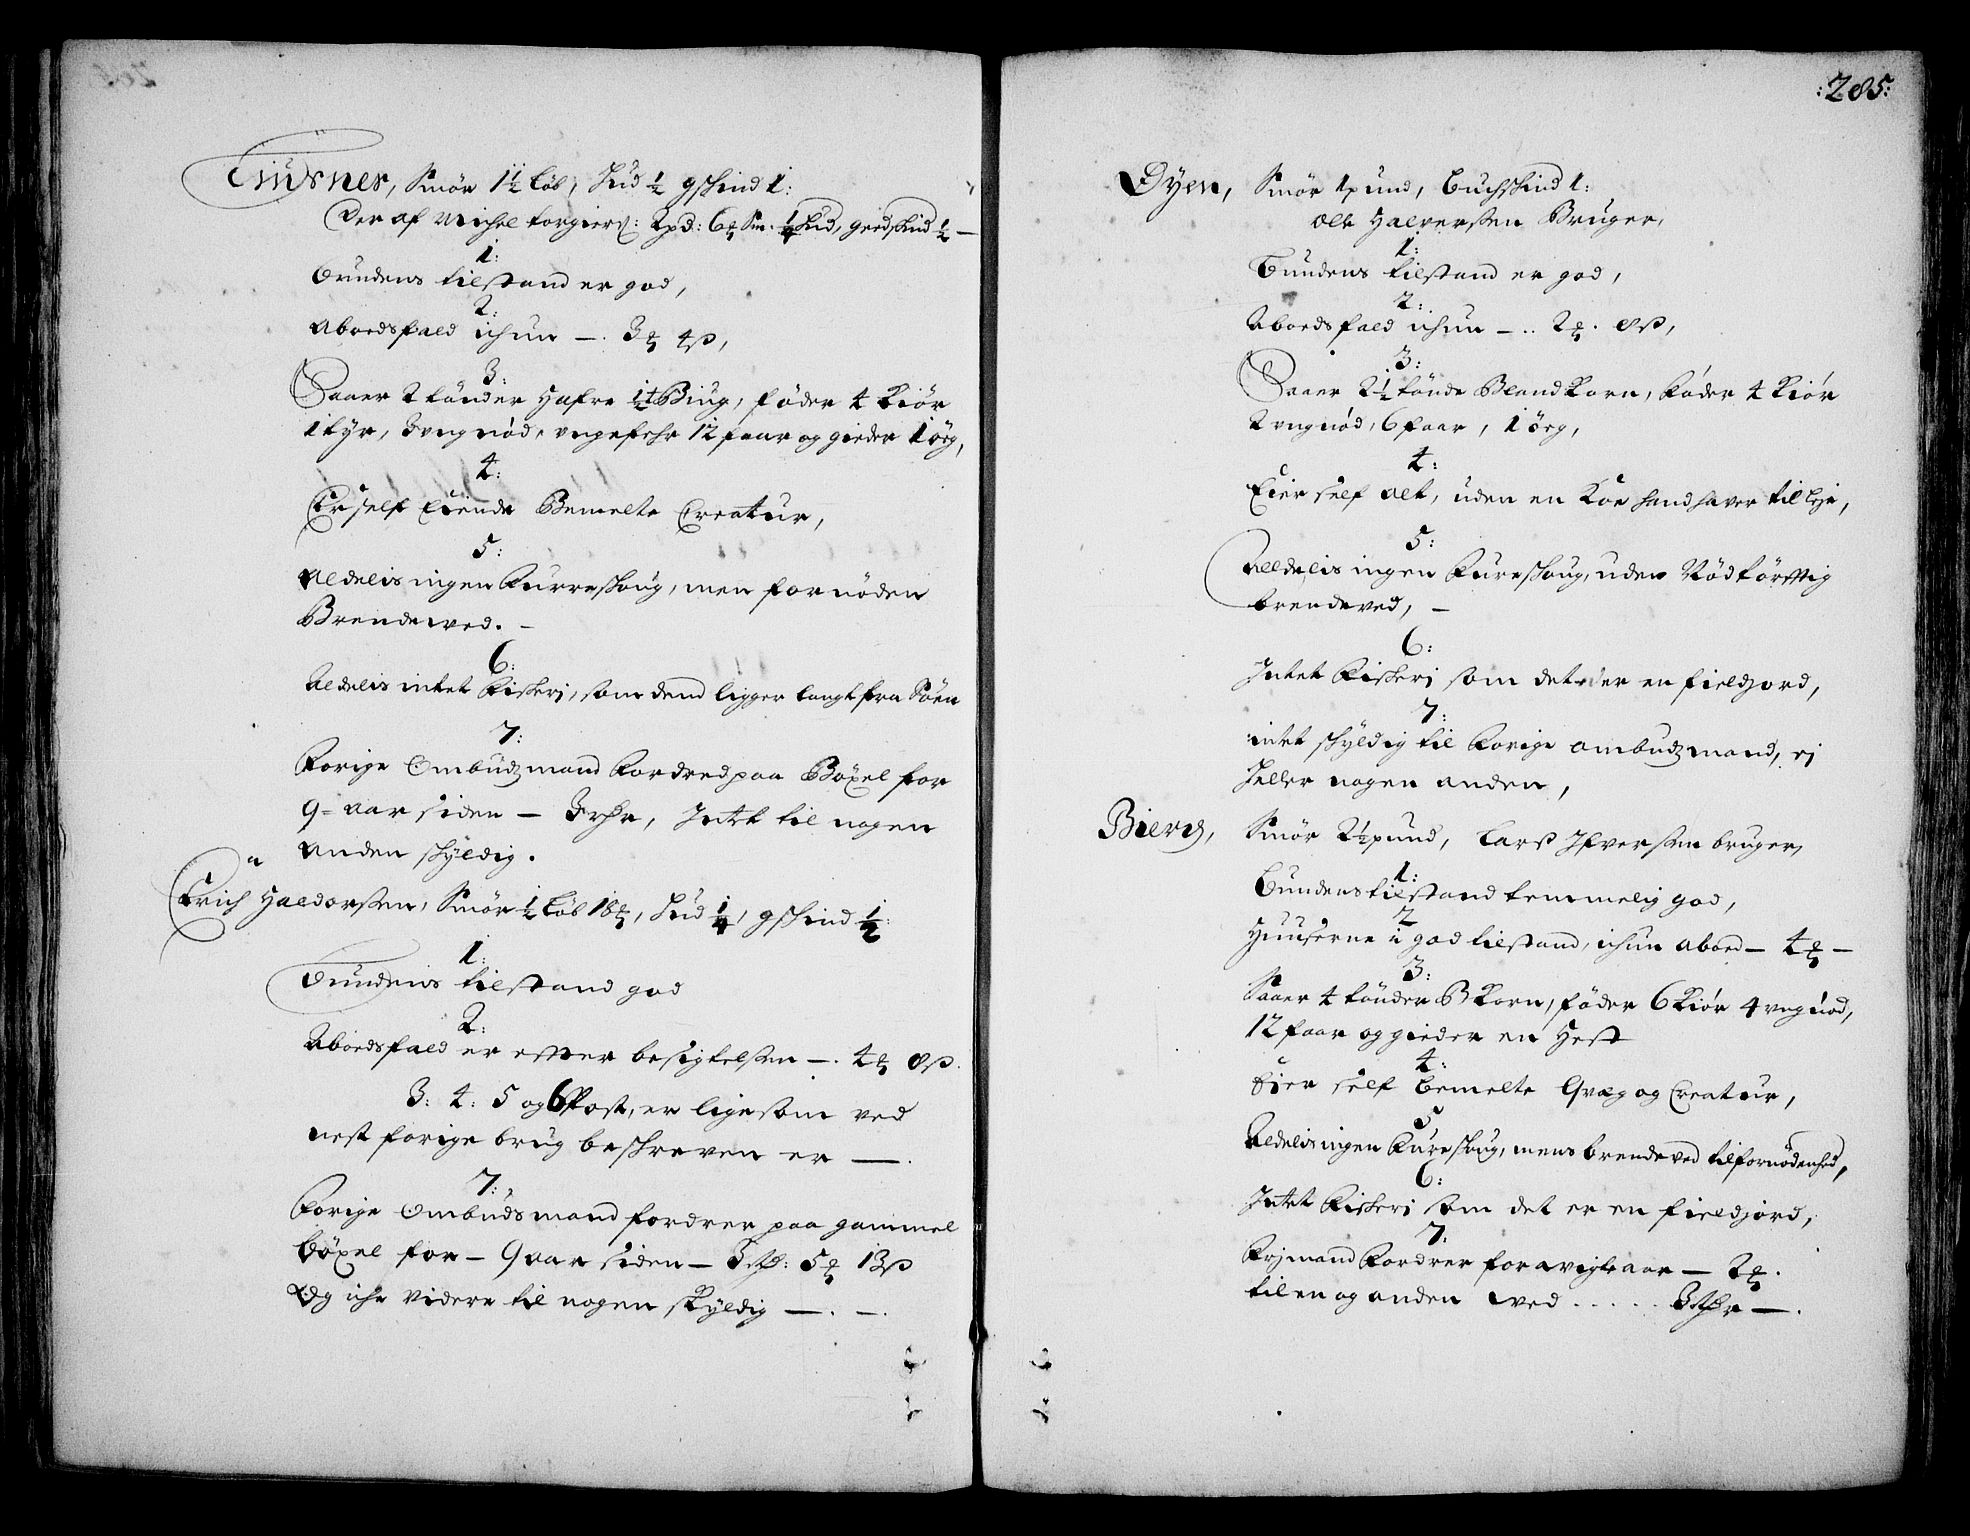 Tiusnes, Smör 1½ Löb, Hud ½ gskind 1:
Der af Michel Torgiers: 2pd: 6 mk Sm. ¼ Hud, giedskind ½ —
1:
Bundens tilstand er god,
2:
Aboedsfald ichun —. 3 mk 4 ß,
3:
Saaer 2 tønder Hafre ½ t Biug, føder 4 Kiör
1 tyr, 3 ungnöd, ungefehr 12 faar og gieder 1 ög,
4:
Er self Eiende Bemelte Creatur,
5:
Aldelis ingen Furreskoug, men fornöden
Brendeved. —
6:
Aldelis intet Fiskeri, som dend ligger langt fra Söen
7:
Forige Ombudzmand Fordred paa Böxel for
9 = aar siden — 3 rdr, Intet til nogen
anden skyldig.
Erich Haldorssen, Smör ½ Löb 18 mk, Hud ¼, gskind ½:
1:
Bundens tilstand god
2:
Aboedsfald er efter besigtelssen —. 4 mk 8 ß.
3: 4: 5 og 6 Post, er ligesom ved
nest forige brug beskreven er —.
7:
Forige Ombudsmand fordrer paa gammel
Böxel for — 9 aar siden — 3 rd: 5 mk 13 ß
Og iche videre til nogen skyldig —. —.
:285:
Öyen, Smör 1 pund, Buchskind 1:
Olle Halverssen Bruger,
1:
Bundens tilstand er god,
2:
Aboedsfald ichun — .. 2 mk. 8 ß,
3:
Saaer 2½ tønde Blandkorn, Föder 4 Kiör
2 ungnöd, 6 faar, 1 ög,
4:
Eier self alt, uden en Koe hand haver til leje,
5:
Alldelis ingen Fureskoug, uden Nödtörfftig
brendeved, —
6:
Intet Fiskeri som det er en fieldjord,
7:
intet skyldig til Forige ombudzmand, ej
heller nogen anden,
Bierg, Smör 2½ pund, Lars Ifverssen bruger,
1:
Bundens tilstand temmelig god,
2
Huuserne i god tilstand, ichun aboed — 4 mk —
3:
Saaer 4 tønder B Korn, föder 6 Kiör 4 ungnöd,
12 faar og gieder en Hest
4:
Eier self bemelte Qvæg og Creatur,
5
Aldelis ingen Fureskoug, mens brendeved til fornödenhed,
6:
Intet Fiskeri som det er en fieldjord,
7.
Fojmand Fordrer for avigte aar — 2 mk.
til en og anden ved ..... 3 rdr —.